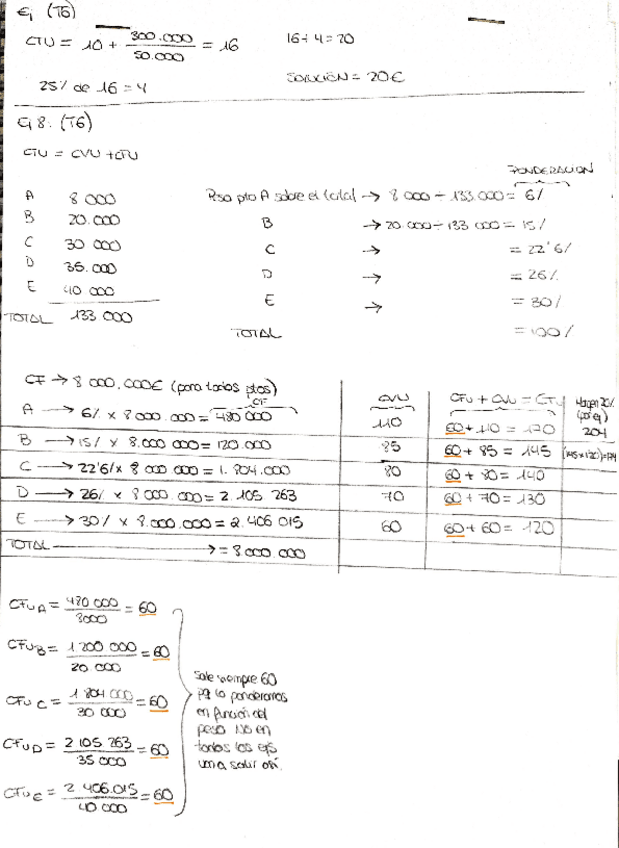 Ej (T6)
CTU = 10 + 300.000 / 50.000 = 16    16+4=20
25% de 16 = 4    SOLUCIÓN = 20€
Ej 8: (T6)
CTU = CVU + CFU
PONDERACION
A    8 000    Peso pto A sobre el total → 8 000 ÷ 133.000 = 6%
B    20.000    B → 20.000 ÷ 133 000 = 15%
C    30 000    C → = 22'6%
D    35.000    D → = 26%
E    40 000    E → = 30%
TOTAL    133 000    TOTAL = 100%
CF → 8 000.000€ (para todos ptos)    CVU    CFU + CVU = CTU    Margen 20% (por ej)
CF
A → 6% x 8 000.000 = 480 000    110    60 + 110 = 170    204
B → 15% x 8.000 000 = 120.000    85    60 + 85 = 145    (145 x 1'20) = 174
C → 22'6% x 8 000 000 = 1.804.000    80    60 + 80 = 140
D → 26% x 8 000.000 = 2.105 263    70    60 + 70 = 130
E → 30% x 8.000.000 = 2.406 015    60    60 + 60 = 120
TOTAL → = 8 000.000
CFU A = 480 000 / 8000 = 60
CFU B = 1 200 000 / 20 000 = 60
CFU C = 1 804 000 / 30 000 = 60
CFU D = 2 105 263 / 35 000 = 60
CFU E = 2 406.015 / 40 000 = 60
Sale siempre 60
pq lo ponderamos
en función del
peso. No en
todos los ejs
va a salir así.